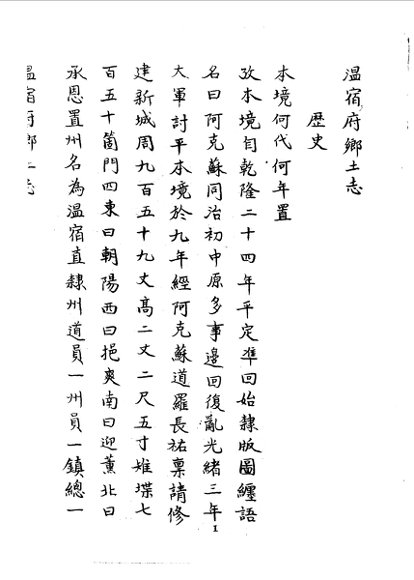 溫宿府鄉土志
歷史
本境何代何年置
攷本境自乾隆二十四年平定準回始隸版圖纏語
名曰阿克蘇同治初中原多事邊回復亂光緒三年
大軍討平本境於九年經阿克蘇道羅長祐稟請修
建新城周九百五十九丈高二丈二尺五寸雉堞七
百五十箇門四東曰朝陽西曰挹爽南曰迎薰北曰
承恩置州名為溫宿直隸州道員一州員一鎮總一
溫宿府鄉土志
1